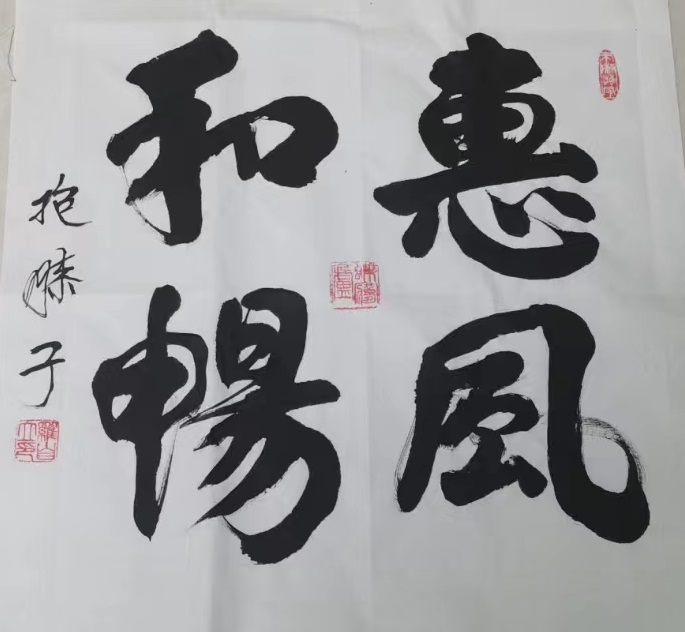 惠風
和暢
抱膝子